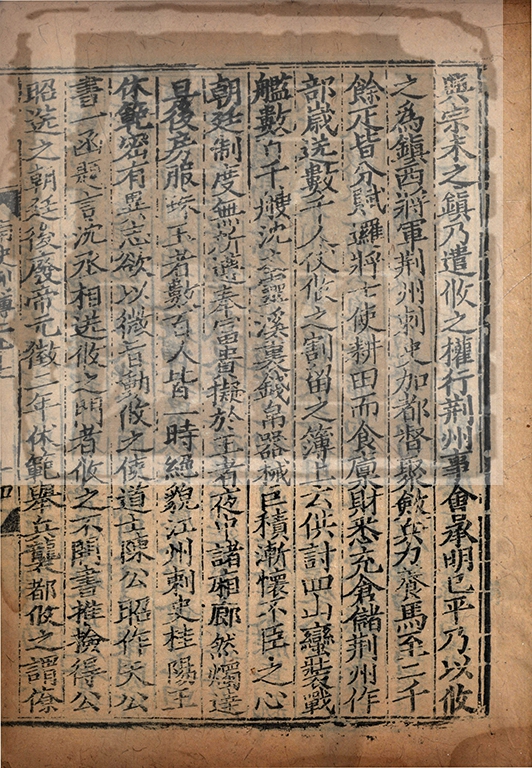 興宗未之鎮乃遣攸之權行荆州事會承明已平乃以攸
之為鎮西將軍荆州刺史加都督聚斂兵力養馬至二千
餘疋皆分賦邏將士使耕田而食廩財悉充倉儲荆州作
部歲送數千人仗攸之割留之簿上云供討四山蠻裝戰
艦數百千艘沈之靈溪裏錢帛器械巨積漸懷不臣之心
朝廷制度無所遵奉富貴擬於王者夜中諸廂廊然燭達
旦後房服珠玉者數百人皆一時絕貌江州刺史桂陽王
休範密有異志欲以微旨動攸之使道士陳公昭作天公
書一函題言沈丞相送攸之門者攸之不開書推檢得公
昭送之朝廷後廢帝元徽二年休範舉兵襲都攸之謂僚